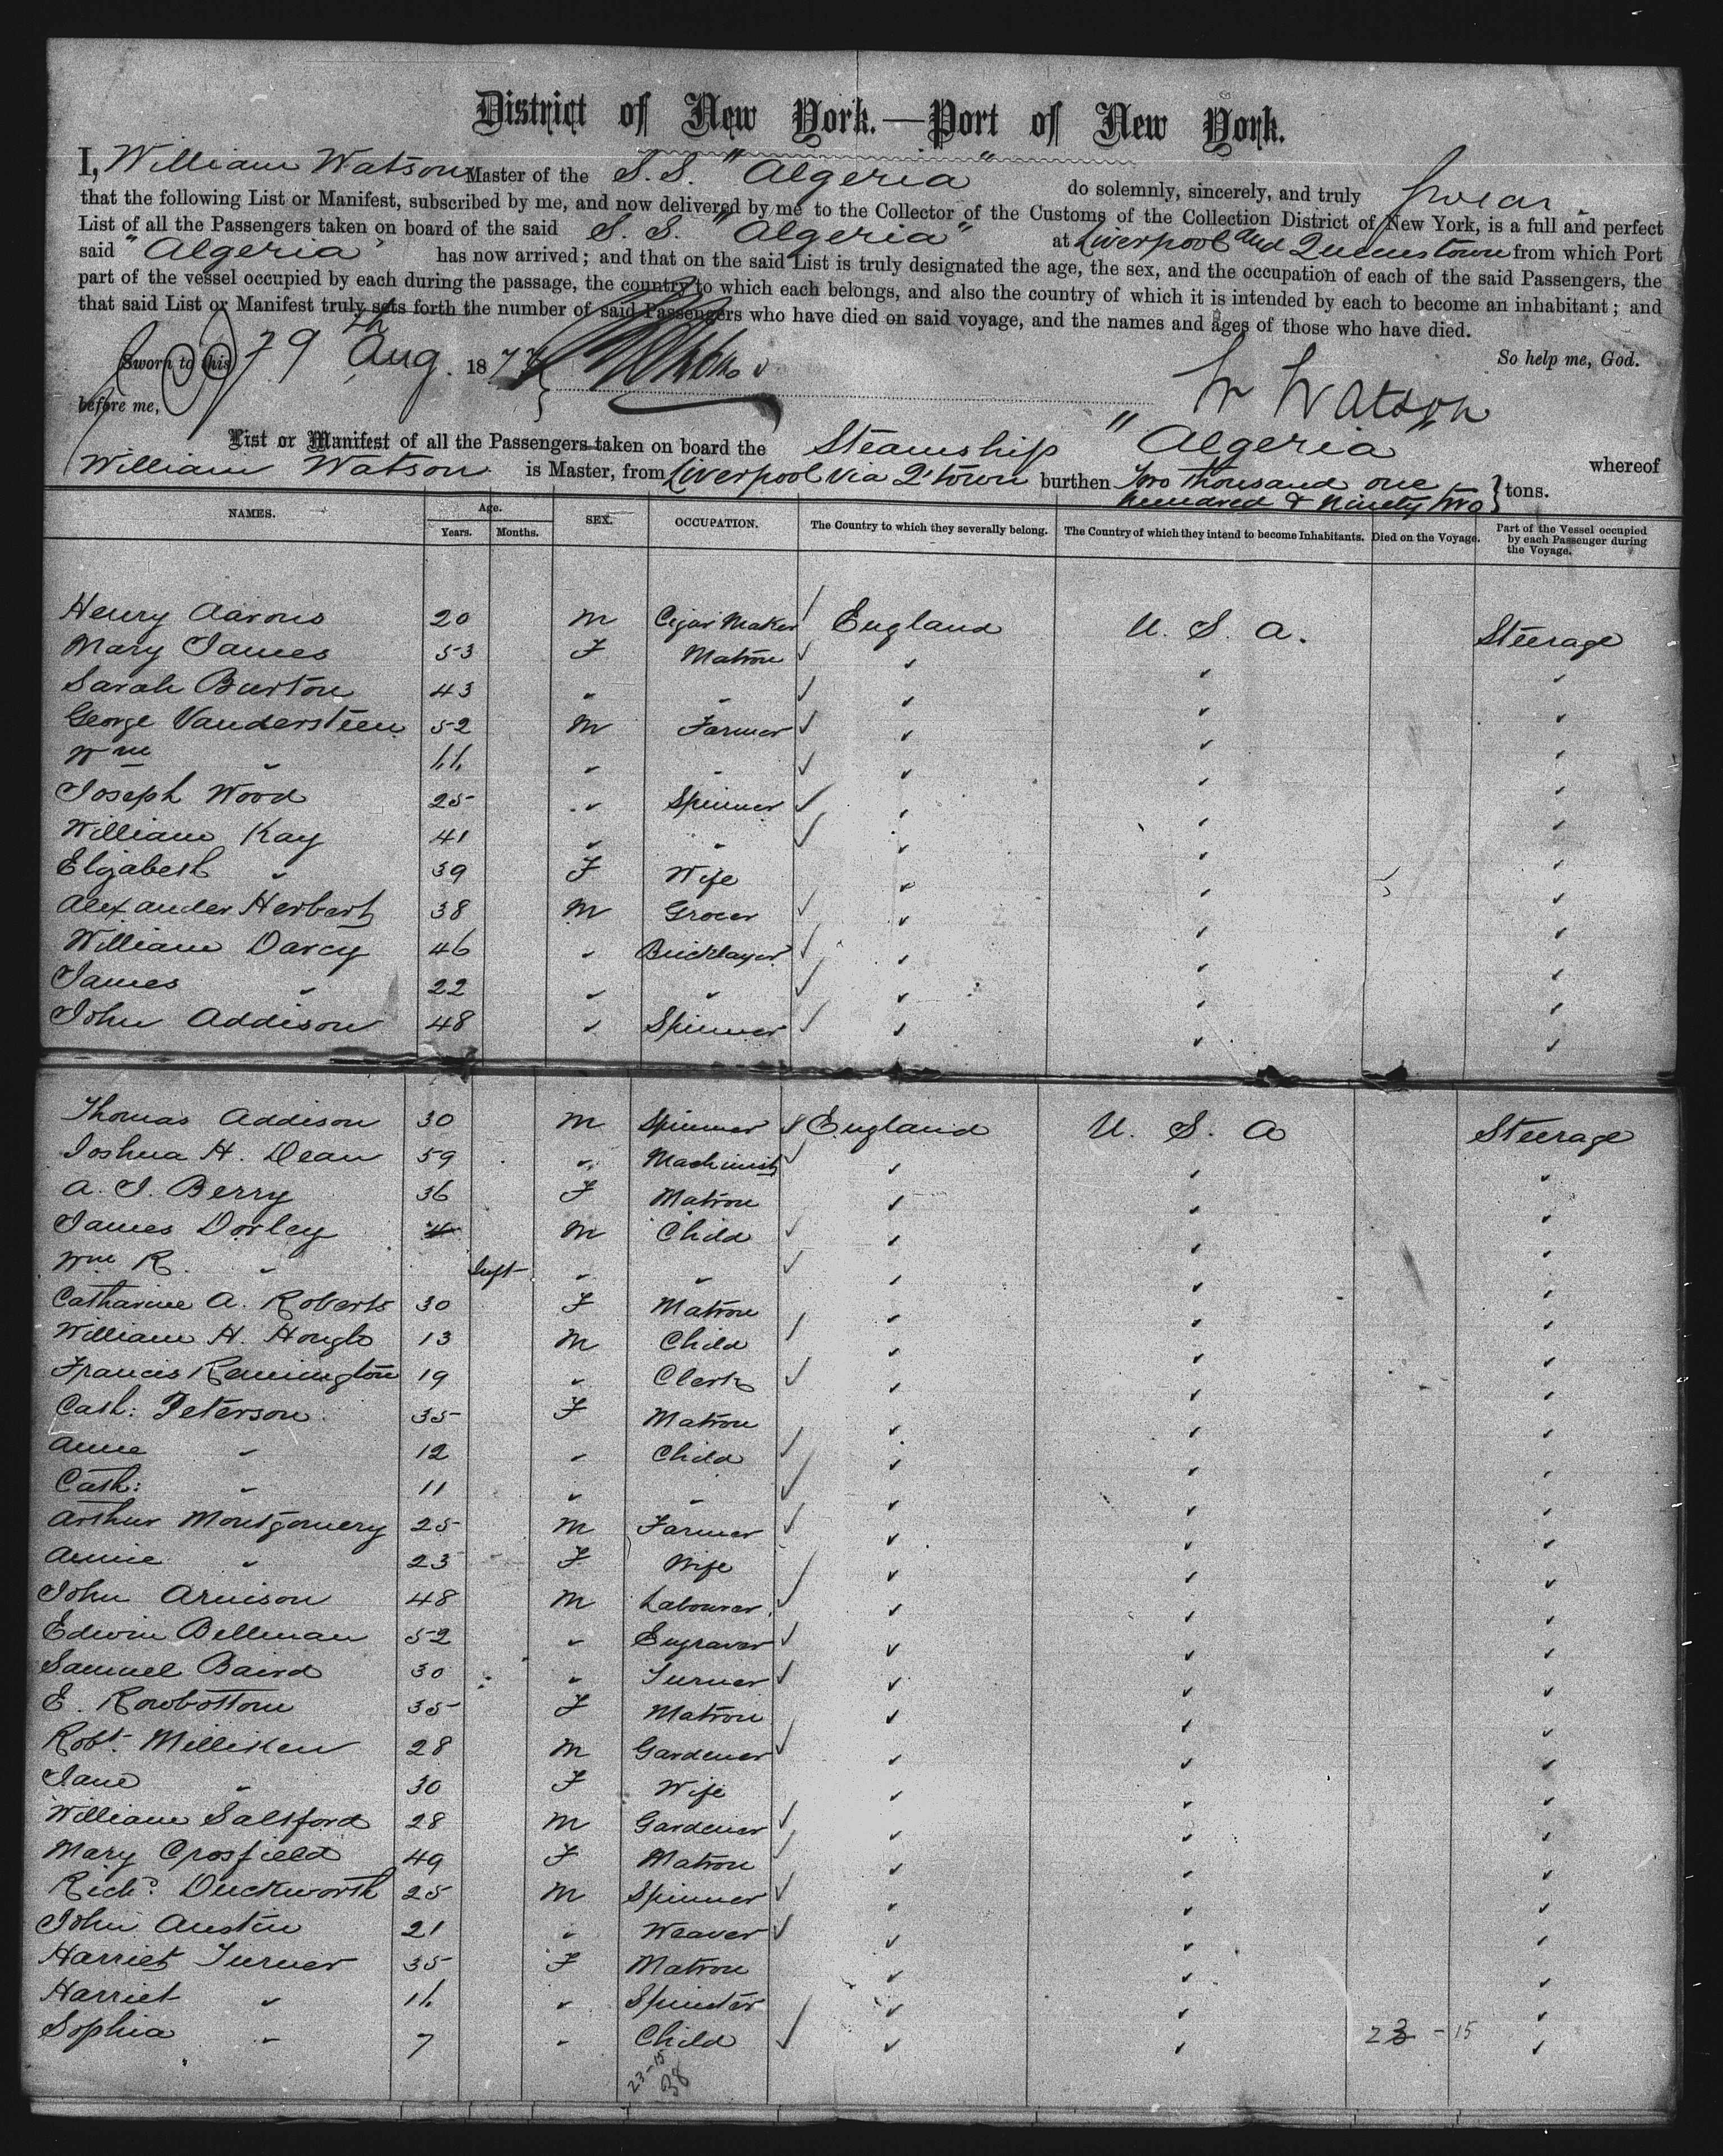 District of New York.—Port of New York.
I, William Watson Master of the S.S. "Algeria" do solemnly, sincerely, and truly swear
that the following List or Manifest, subscribed by me, and now delivered by me to the Collector of the Customs of the Collection District of New York, is a full and perfect
List of all the Passengers taken on board of the said S. S. "Algeria" at Liverpool and Queenstown from which Port
said "Algeria" has now arrived; and that on the said List is truly designated the age, the sex, and the occupation of each of the said Passengers, the
part of the vessel occupied by each during the passage, the country to which each belongs, and also the country of which it is intended by each to become an inhabitant; and
that said List or Manifest truly sets forth the number of said Passengers who have died on said voyage, and the names and ages of those who have died.
So help me, God.
Sworn to this 29th Aug. 187
before me,
W Watson
List or Manifest of all the Passengers taken on board the Steamship "Algeria" whereof
William Watson is Master, from Liverpool via Q'town burthen Two thousand one hundred & ninety two } tons.
NAMES. Age. Years. Months. SEX. OCCUPATION. The Country to which they severally belong. The Country of which they intend to become Inhabitants. Died on the Voyage. Part of the Vessel occupied by each Passenger during the Voyage.
Henry Aarons 20 M Cigar Maker England U. S. A. Steerage
Mary James 53 F Matron
Sarah Burton 43 " "
George Vandersteen 52 M Farmer
Wm " "
Joseph Wood 25 " Spinner
William Kay 41 " "
Elizabeth " 39 F Wife
Alexander Herbert 38 M Grocer
William Darcy 46 " Bricklayer
James " 22 " "
John Addison 48 " Spinner
Thomas Addison 30 M Spinner England U. S. A Steerage
Joshua H. Dean 59 " Machinist
A. J. Berry 36 F Matron
James Dorley M Child
Wm R. " Inft " "
Catharine A. Roberts 30 F Matron
William H. Hough 13 M Child
Francis Remington 19 " Clerk
Cath: Peterson 35 F Matron
Anne " 12 " Child
Cath: " 11 " "
Arthur Montgomery 25 M Farmer
Annie " 23 F Wife
John Arnison 48 M Labourer
Edwin Bellman 52 " Engraver
Samuel Baird 30 " Turner
E. Rowbottom 35 F Matron
Robt. Milliken 28 M Gardener
Jane " 30 F Wife
William Salsford 28 M Gardener
Mary Crosfield 49 F Matron
Richd. Duckworth 25 M Spinner
John Austin 21 " Weaver
Harriet Turner 35 F Matron
Harriet " 16 " Spinster
Sophia " 7 " Child
23 - 15
23-15
38